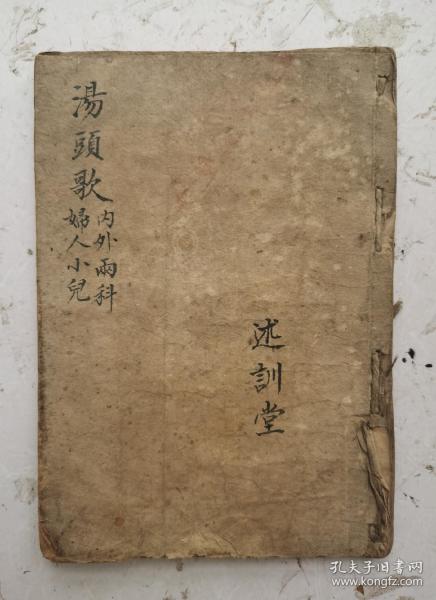 湯頭歌
內外兩科
婦人小兒
述訓堂
孔夫子旧书网
www.kongfz.com